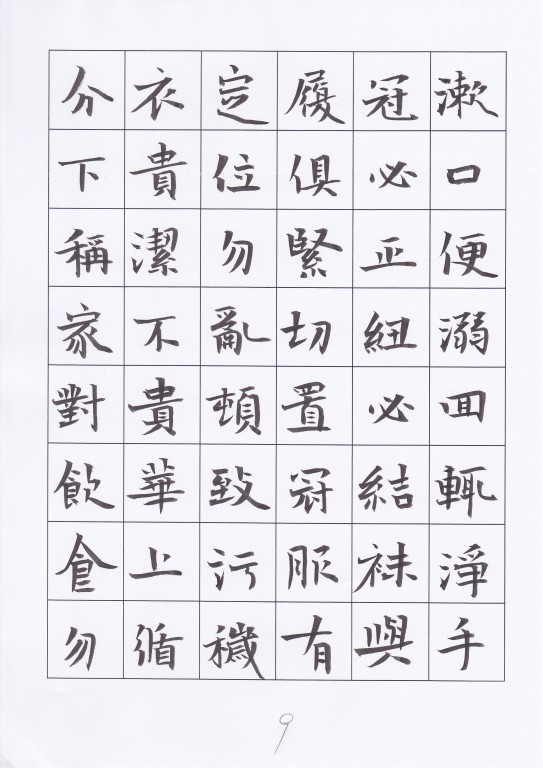 漱口便溺囬輒淨手
冠必正紐必結袜與
履俱緊切置冠服有
定位勿亂頓致污穢
衣貴潔不貴華上循
分下稱家對飲食勿
9